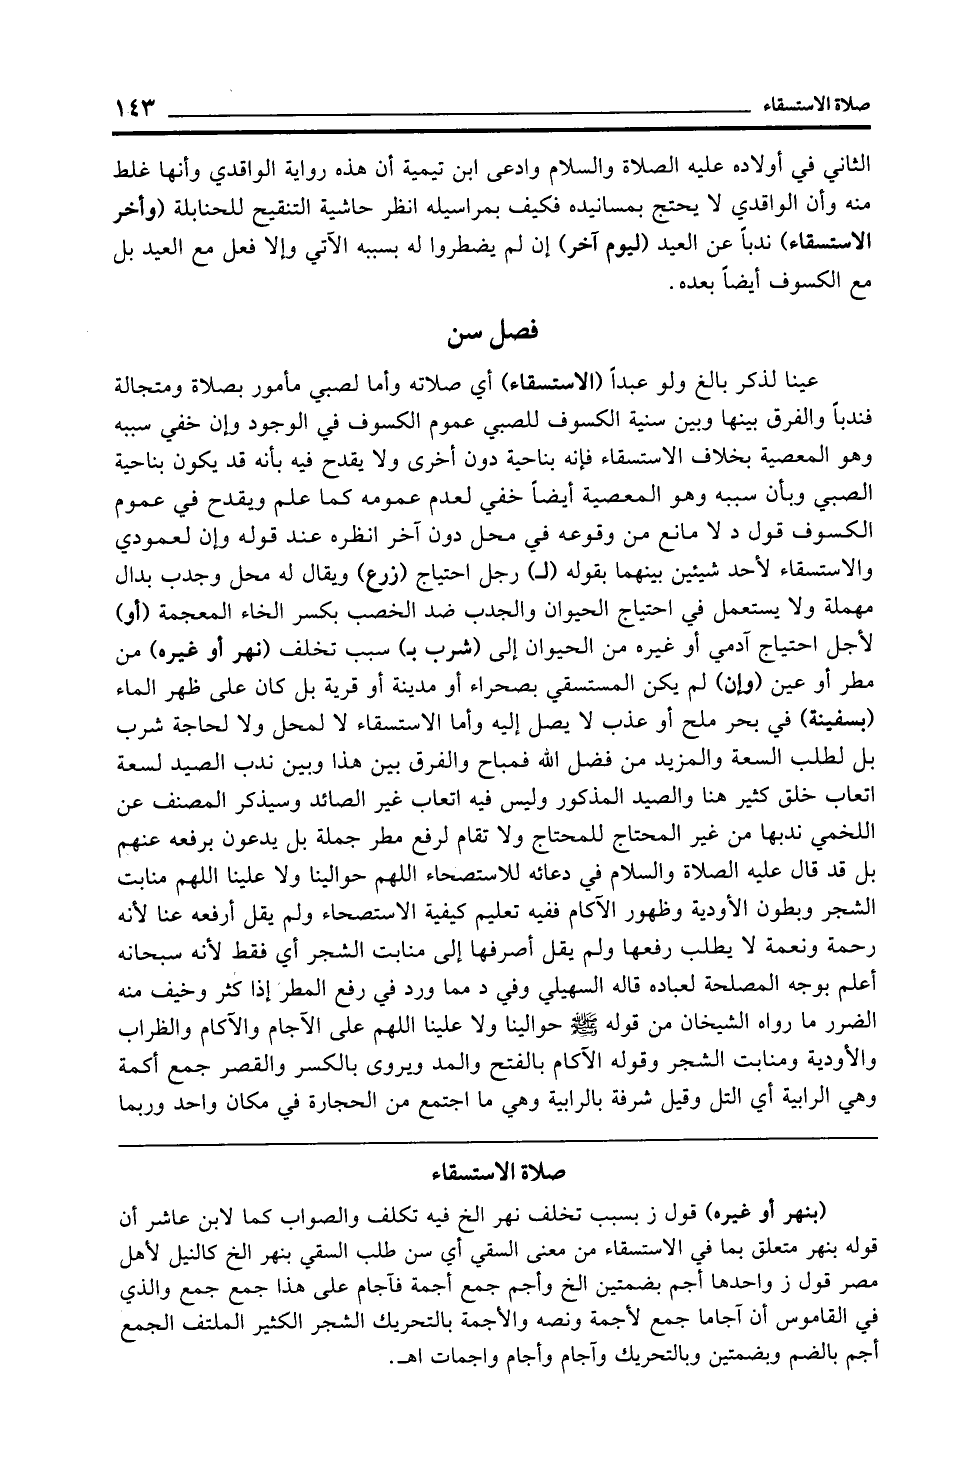 صلاة الاستسقاء ١٤٣
الثاني في أولاده عليه الصلاة والسلام وادعى ابن تيمية أن هذه رواية الواقدي وأنها غلط
منه وأن الواقدي لا يحتج بمسانيده فكيف بمراسيله انظر حاشية التنقيح للحنابلة (وأخر
الاستسقاء) ندباً عن العيد (ليوم آخر) إن لم يضطروا له بسببه الآتي وإلا فعل مع العيد بل
مع الكسوف أيضاً بعده.
فصل سن
عينا لذكر بالغ ولو عبداً (الاستسقاء) أي صلاته وأما لصبي مأمور بصلاة ومتجالة
فندباً والفرق بينها وبين سنية الكسوف للصبي عموم الكسوف في الوجود وإن خفي سببه
وهو المعصية بخلاف الاستسقاء فإنه بناحية دون أخرى ولا يقدح فيه بأنه قد يكون بناحية
الصبي وبأن سببه وهو المعصية أيضاً خفي لعدم عمومه كما علم ويقدح في عموم
الكسوف قول د لا مانع من وقوعه في محل دون آخر انظره عند قوله وإن لعمودي
والاستسقاء لأحد شيئين بينهما بقوله (لـ) رجل احتياج (زرع) ويقال له محل وجدب بدال
مهملة ولا يستعمل في احتياج الحيوان والجدب ضد الخصب بكسر الخاء المعجمة (أو)
لأجل احتياج آدمي أو غيره من الحيوان إلى (شرب بـ) سبب تخلف (نهر أو غيره) من
مطر أو عين (وإن) لم يكن المستسقي بصحراء أو مدينة أو قرية بل كان على ظهر الماء
(بسفينة) في بحر ملح أو عذب لا يصل إليه وأما الاستسقاء لا لمحل ولا لحاجة شرب
بل لطلب السعة والمزيد من فضل الله فمباح والفرق بين هذا وبين ندب الصيد لسعة
اتعاب خلق كثير هنا والصيد المذكور وليس فيه اتعاب غير الصائد وسيذكر المصنف عن
اللخمي ندبها من غير المحتاج للمحتاج ولا تقام لرفع مطر جملة بل يدعون برفعه عنهم
بل قد قال عليه الصلاة والسلام في دعائه للاستصحاء اللهم حوالينا ولا علينا اللهم منابت
الشجر وبطون الأودية وظهور الآكام ففيه تعليم كيفية الاستصحاء ولم يقل أرفعه عنا لأنه
رحمة ونعمة لا يطلب رفعها ولم يقل أصرفها إلى منابت الشجر أي فقط لأنه سبحانه
أعلم بوجه المصلحة لعباده قاله السهيلي وفي د مما ورد في رفع المطر إذا كثر وخيف منه
الضرر ما رواه الشيخان من قوله ﷺ حوالينا ولا علينا اللهم على الآجام والآكام والظراب
والأودية ومنابت الشجر وقوله الآكام بالفتح والمد ويروى بالكسر والقصر جمع أكمة
وهي الرابية أي التل وقيل شرفة بالرابية وهي ما اجتمع من الحجارة في مكان واحد وربما
صلاة الاستسقاء
(بنهر أو غيره) قول ز بسبب تخلف نهر الخ فيه تكلف والصواب كما لابن عاشر أن
قوله بنهر متعلق بما في الاستسقاء من معنى السقي أي سن طلب السقي بنهر الخ كالنيل لأهل
مصر قول ز واحدها أجم بضمتين الخ وأجم جمع أجمة فآجام على هذا جمع جمع والذي
في القاموس أن آجاما جمع لأجمة ونصه والأجمة بالتحريك الشجر الكثير الملتف الجمع
أجم بالضم وبضمتين وبالتحريك وآجام وأجام واجمات اهـ.